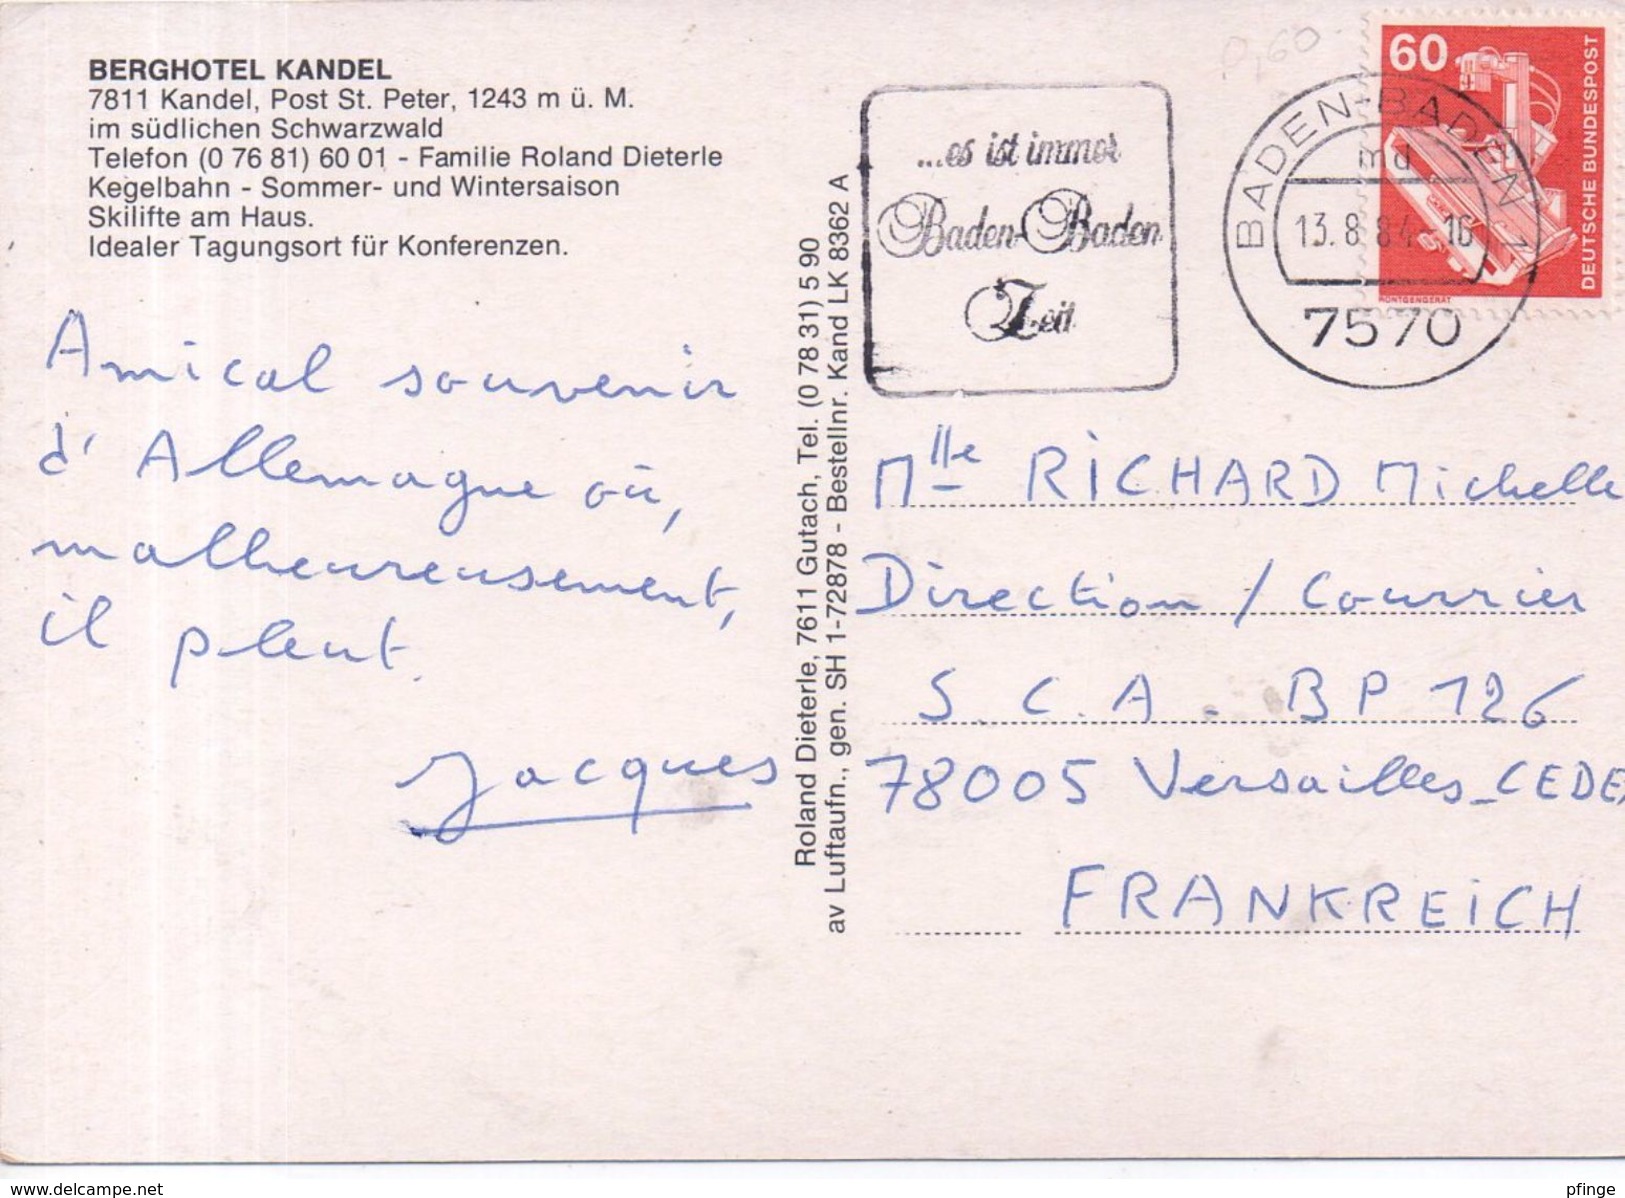 BERGHOTEL KANDEL
7811 Kandel, Post St. Peter, 1243 m ü. M.
im südlichen Schwarzwald
Telefon (0 76 81) 60 01 - Familie Roland Dieterle
Kegelbahn - Sommer- und Wintersaison
Skilifte am Haus.
Idealer Tagungsort für Konferenzen.
Amical souvenir
d'Allemagne où,
malheureusement,
il pleut.
Jacques
Roland Dieterle, 7611 Gutach, Tel. (0 78 31) 5 90
av Luftaufn., gen. SH 1-72878 - Bestellnr. Kand LK 8362 A
0,60
...es ist immer
Baden-Baden
Zeit
BADEN-BADEN 1
md
13.8.84-16
7570
60
DEUTSCHE BUNDESPOST
RÖNTGENGERÄT
Mlle RICHARD Michelle
Direction / Courrier
S.C.A. BP 126
78005 Versailles-CEDEX
FRANKREICH
www.delcampe.net
pfinge